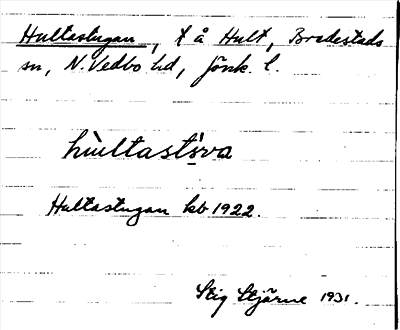 Hultastugan, t å Hult, Bredestads
sn, N. Vedbo hd, Jönk. l.
hùltastùva
Hultastugan kb 1922.
Stig Stjärne 1931.